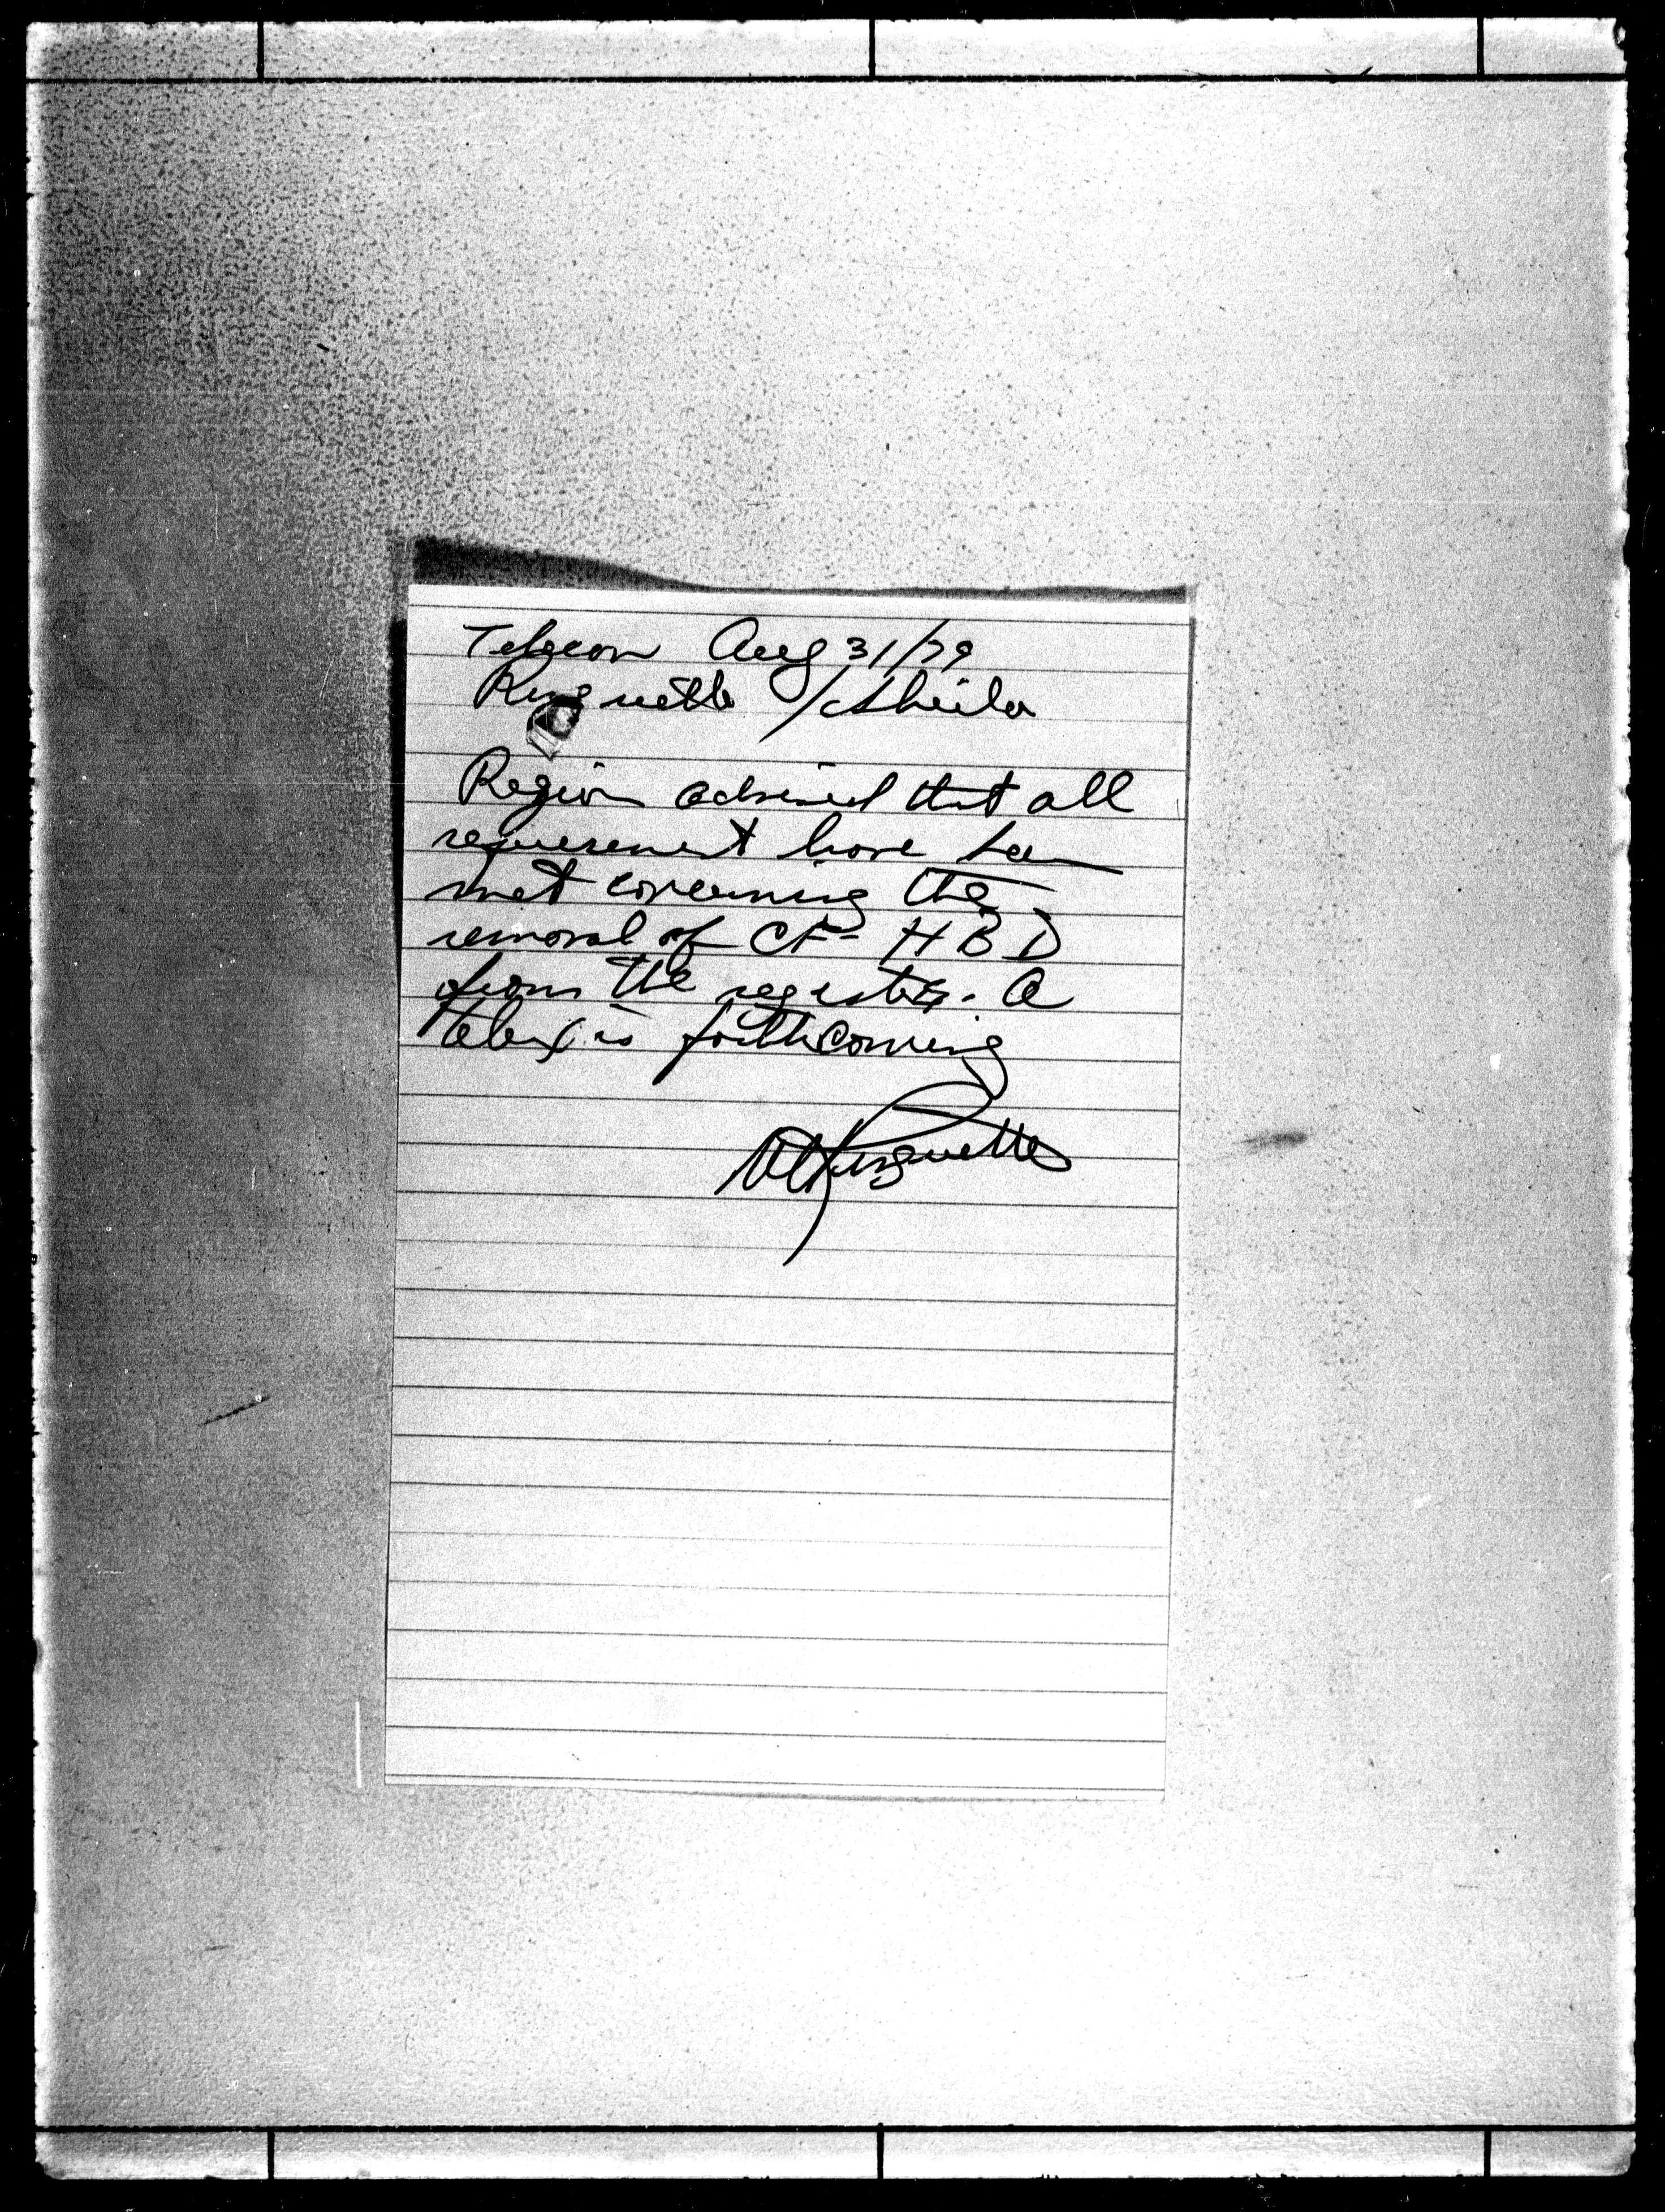 Telecon Aug 31/79
Ringuette / Sheila
Region advised that all
requirement have been
met concerning the
removal of CF-HBD
from the register. A
telex is forthcoming
Ringuette